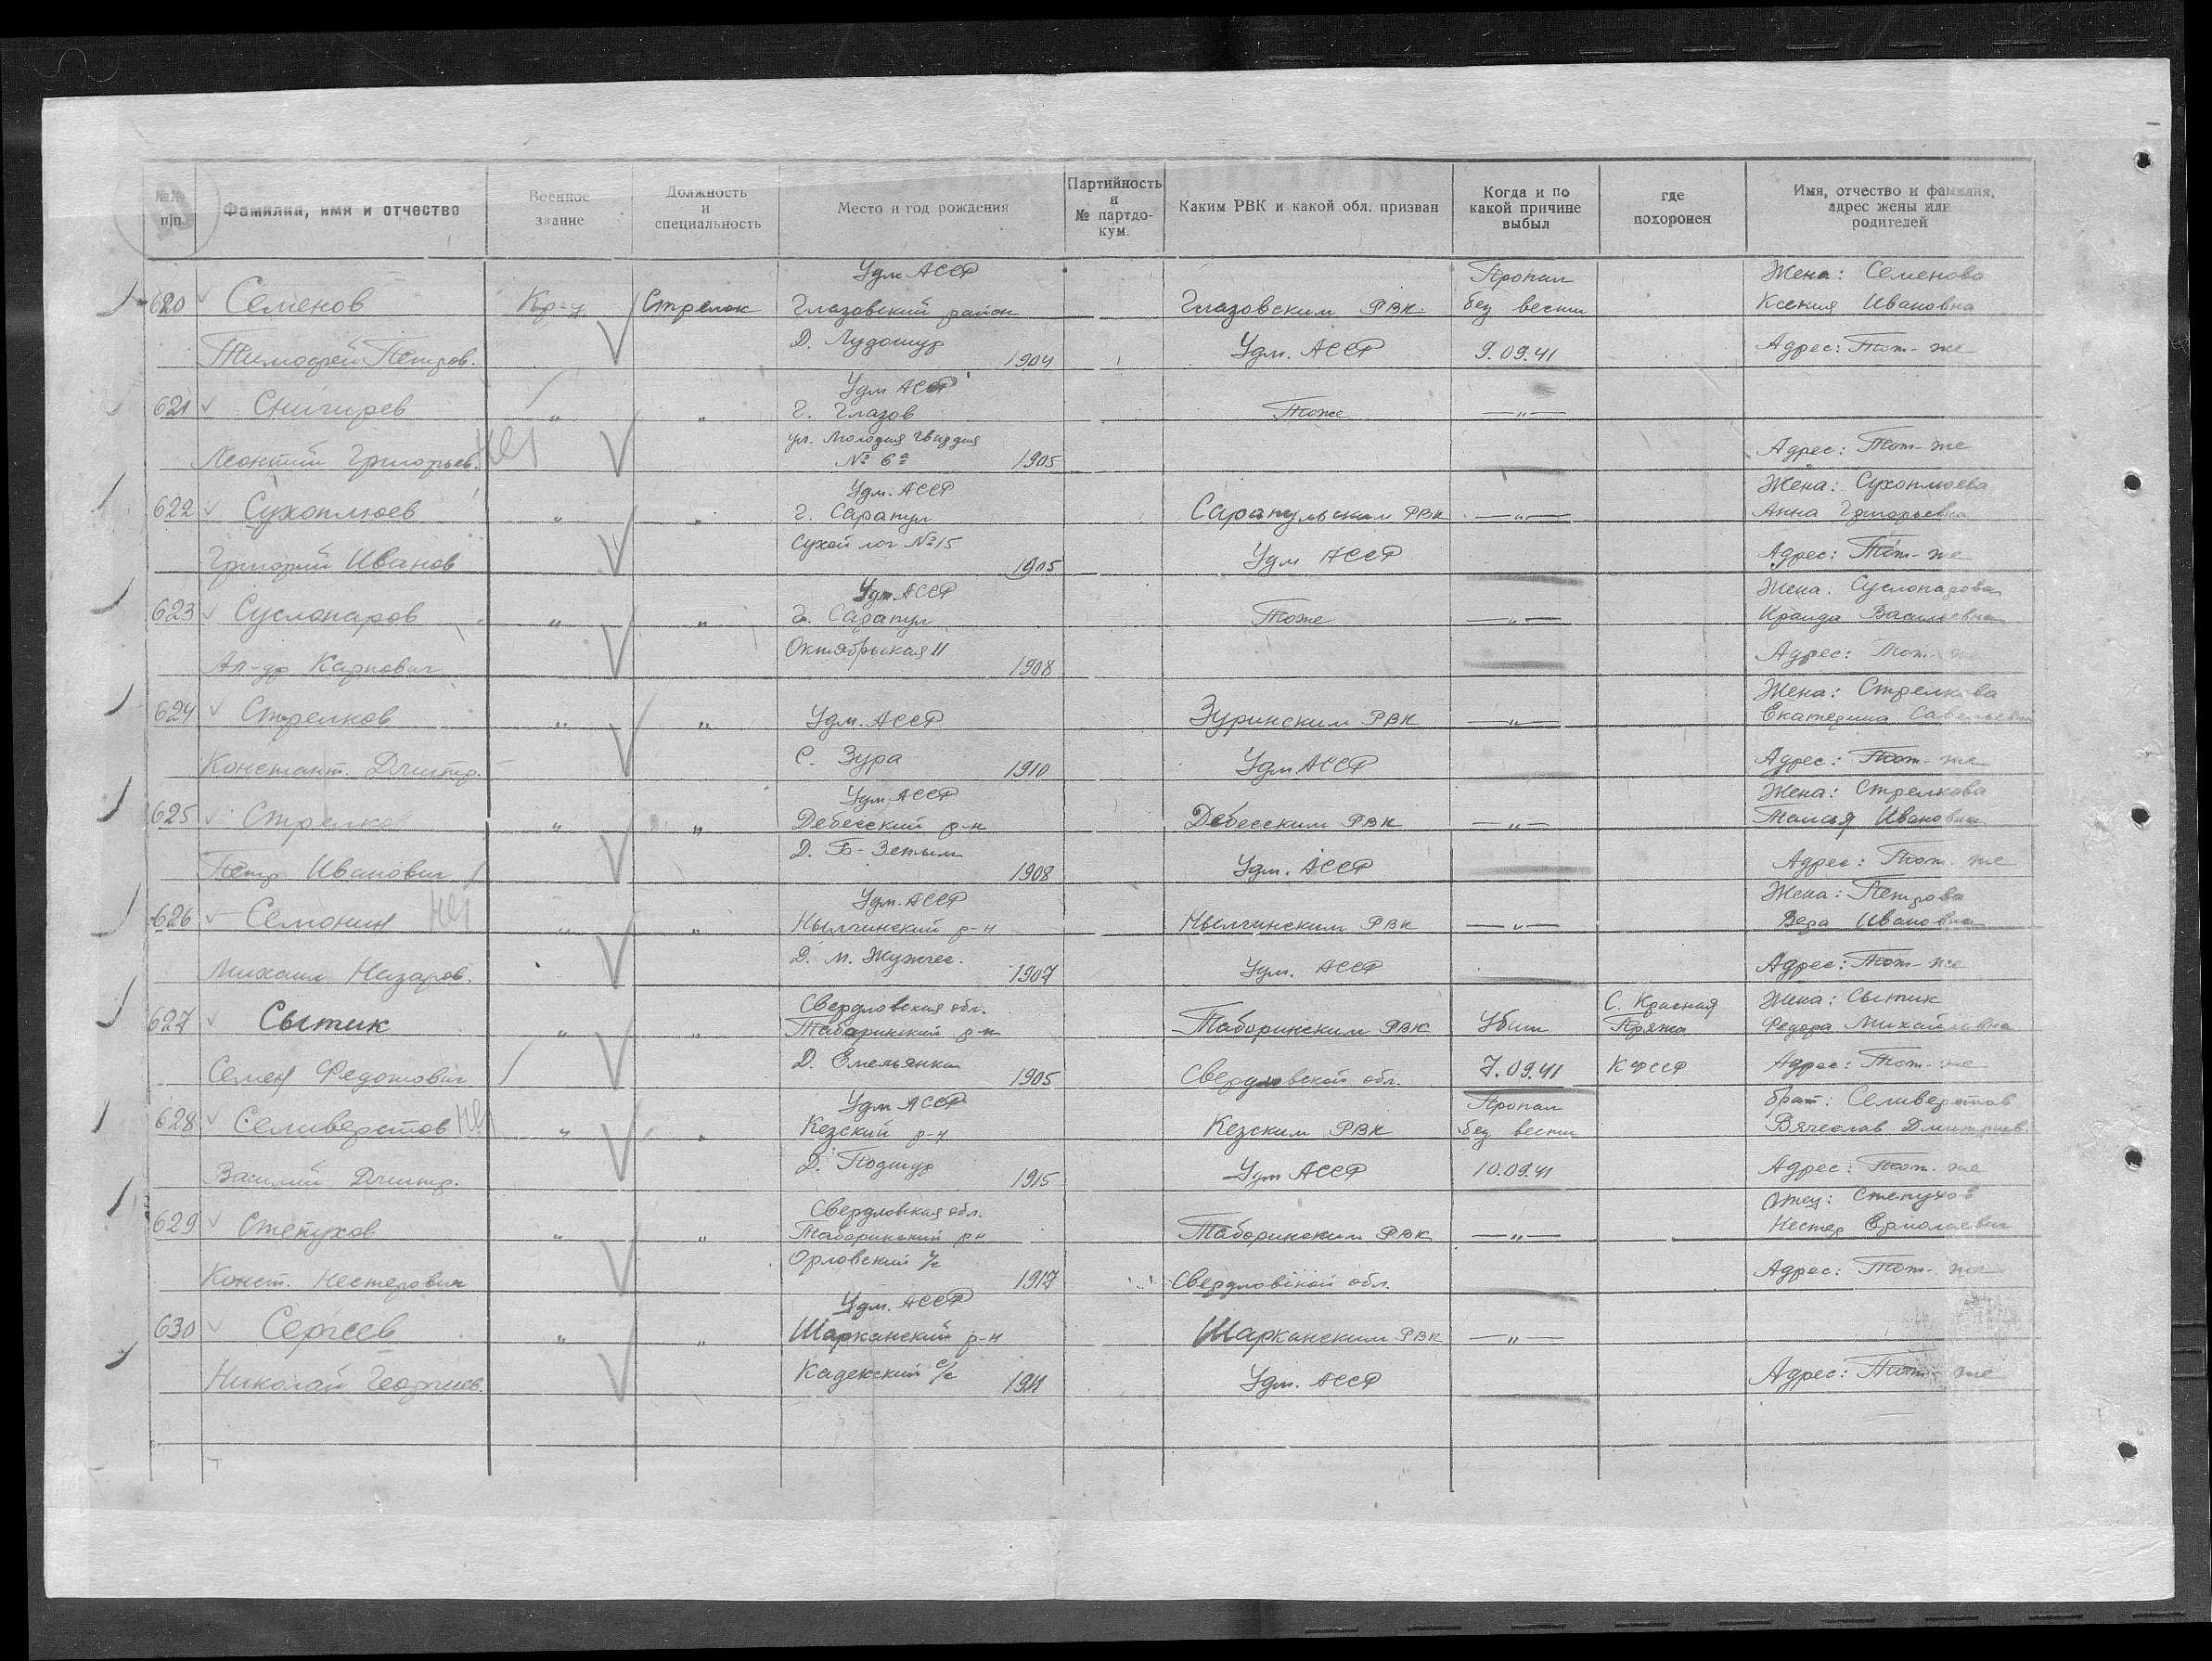 №№ п/п Фамилия, имя и отчество Военное звание Должность и специальность Место и год рождения Партийность и № партдокум. Каким РВК и какой обл. призван Когда и по какой причине выбыл где похоронен Имя, отчество и фамилия, адрес жены или родителей
Удм АССР Пропал Жена: Семенова
620 Семенов Кр-ц Стрелок Глазовский район Глазовским РВК. без вести Ксения Ивановна
Тимофей Петров. Д. Лудошур 1904 Удм. АССР 9.09.41 Адрес: Там-же
Удм АССР
621 Снигирев " " г. Глазов Тоже —"—
Леонтий Григорьев. нет ул. Молодая Гвардия
№ 6а 1905 Адрес: Там-же
Удм. АССР Жена: Сухоплюева
622 Сухоплюев " " г. Сарапул Сарапульским РВК —"— Анна Григорьевна
Григорий Иванов Сухой лог №15 1905 Удм АССР Адрес: Там-же
Удм. АССР Жена: Суслопарова
623 Суслопаров " " г. Сарапул Тоже —"— Ираида Васильевна
Ал-др Карпович Октябрьская 11 1908 Адрес: Там-же
Жена: Стрелкова
624 Стрелков " " Удм. АССР Зуринским РВК —"— Екатерина Савельевна
Констант. Дмитр. С. Зура 1910 Удм АССР Адрес: Там-же
Удм АССР Жена: Стрелкова
625 Стрелков " " Дебесский р-н Дебесским РВК —"— Ивановна
Петр Иванович Д. Б-Зетым 1908 Удм. АССР Адрес: Там-же
Удм. АССР Жена: Петрова
626 Семонин нет " " Нылгинский р-н Нылгинским РВК —"— Вера Ивановна
Михаил Назаров. Д. М. 1907 Удм. АССР Адрес: Там-же
Свердловская обл. С. Красная Жена: Сытик
627 Сытик " " Таборинский р-н Таборинским РВК Убит Пряжа Федора Михайловна
Семен Федотович Д. Емельянка 1905 Свердловской обл. 7.09.41 КФССР Адрес: Там-же
Удм АССР Пропал брат: Селиверстов
628 Селиверстов нет " " Кезский р-н Кезским РВК без вести Вячеслав Дмитриев.
Василий Дмитр. Д. Подшур 1915 Удм АССР 10.09.41 Адрес: Там-же
Свердловская обл. Отец: Степухов
629 Степухов " " Таборинский р-н Таборинским РВК —"— Нестер Ермолаевич
Конст. Нестерович Орловский с/с 1917 Свердловской обл. Адрес: Там-же
Удм. АССР
630 Сергеев " " Шарканский р-н Шарканским РВК —"—
Николай Георгиев. Кадекский с/с 1911 Удм. АССР Адрес: Там-же